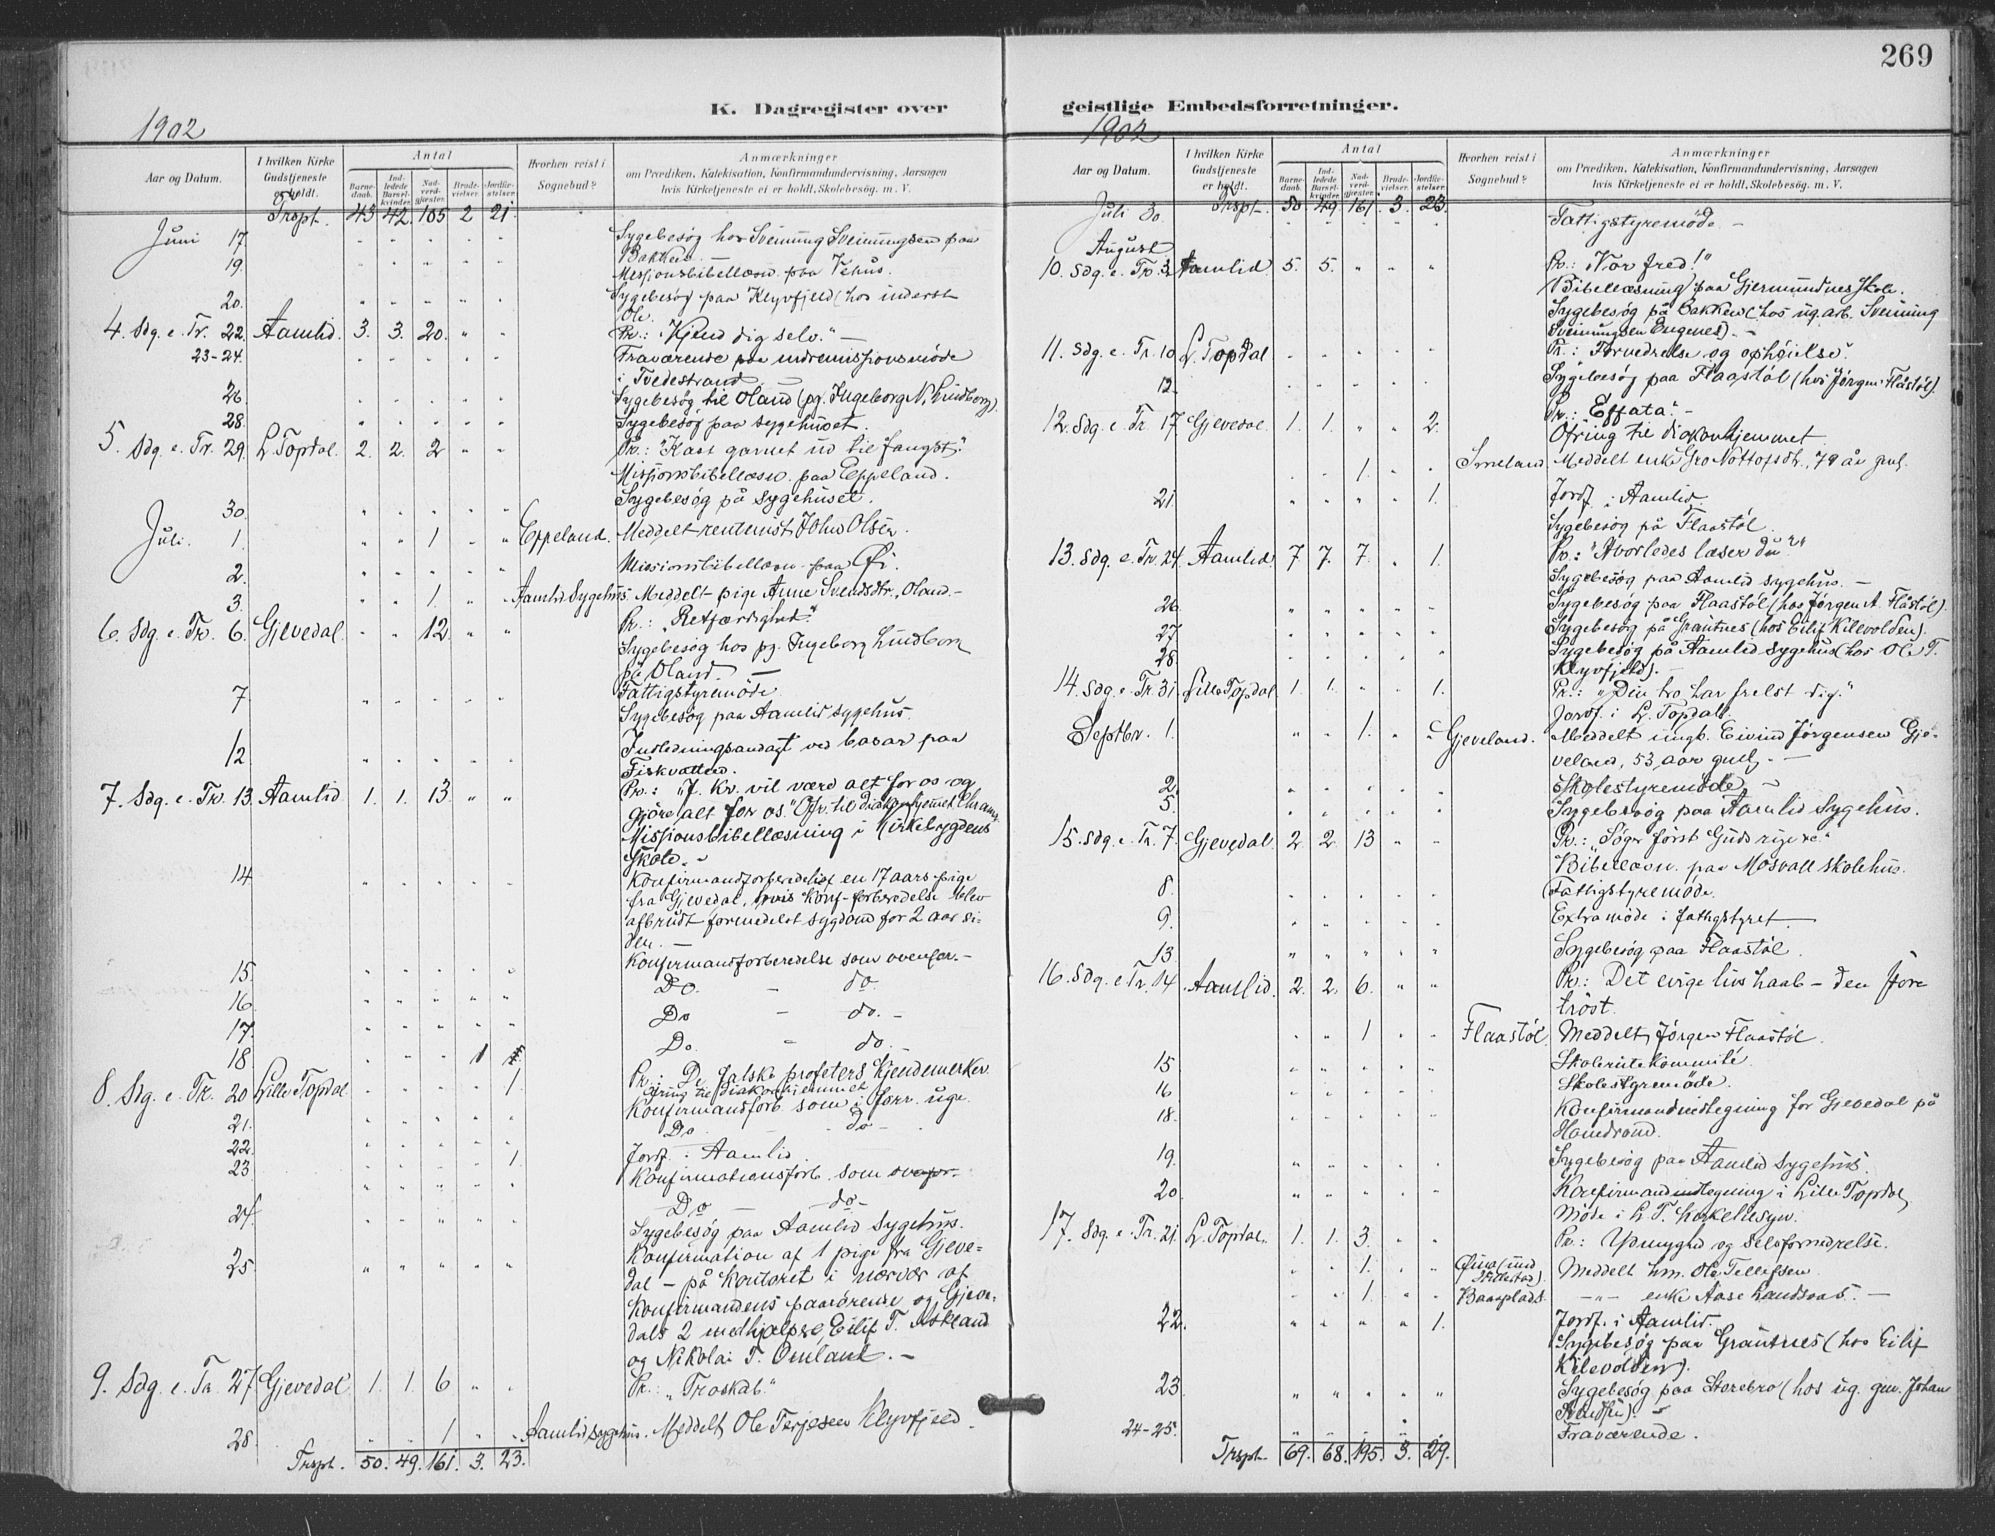 269
K. Dagregister over geistlige Embedsforretninger.
1902
Aar og Datum.
I hvilken Kirke Gudstjeneste er holdt.
Antal
Barnedaab.
Indledede Barselkvinder.
Nadverdgjæster.
Brudevielser.
Jordfæstelser.
Hvorhen reist i Sognebud?
Anmærkninger
om Prædiken, Katekisation, Konfirmandundervisning, Aarsagen
hvis Kirketjeneste ei er holdt, Skolebesøg. m. V.
Trspt. 43 42. 105 2 21
Juni 17. Sygebesøg hos Sveinung Sveinungsen paa
Bakken.
19. Missionsbibellæsn. paa Vehus.
20. Sygebesøg paa Klyvfjeld (hos inderst
Ole.
4. Sdg. e. Tr. 22. Aamlid. 3. 3. 20. " " Pr.: "Kjend dig selv." —
23-24. Fraværende paa indremissionsmøde
i Tvedestrand
26. Sygebesøg til Oland (pg. Ingeborg N. Lindborg).
28. Sygebesøg paa sygehuset.
5. Sdg. e. Tr. 29. L. Topdal. 2. 2. 2 " " Pr.: "Kast garnet ud til fangst."
Missionsbibellæsn. paa Eppeland.
Sygebesøg på sygehuset.
30.
Juli. 1. " " 1 " " Eppeland. Meddelt rentenist John Olsen.
2. Missionsbibellæsn. paa Øi.
3. " " 1. " " Aamlid Sygehus. Meddelt pige Anne Svendsdtr., Oland. —
6. Sdg. e. Tr. 6. Gjevedal. " " 12. " " Pr.: "Retfærdighed."
Sygebesøg hos pg. Ingeborg Lindborg
på Oland. —
7 Fattigstyremøde
Sygebesøg paa Aamlid sygehus.
12. Indledningsandagt ved basar paa
Fiskvatten.
7. Sdg. e. Tr. 13. Aamlid. 1. 1. 13. " " Pr.: "J. Kr. vil værd alt for os og
gjøre alt for os." Ofr. til diakonhjemmet
Missionsbibellæsning i Kirkebygdens
Skole. —
14 Konfirmandforberedelse af en 17 aars pige
fra Gjevedal, hvis Konf.-forberedelse blev
afbrudt formedelst sygdom for 2 aar si-
den. —
15. Konfirmandforberedelse som ovenfor. —
16. Do. — do.
17. Do — do. —
18 " " " 1 Do. — do.
8. Sdg. e. Tr. 20 Lille Topdal " " " " 1. Pr.: De falske profeters Kjendemerker.
Ofring til diakonhjemmet
21. Konfirmandforb. som i forr. uge.
22. Do. — do —
23 1. Jordf. i Aamlid.
Konfirmationsforb. som ovenfor.
24. Do — do —
Sygebesøg paa Aamlid Sygehus.
25. Konfirmation af 1 pige fra Gjeve-
dal — på Kontoret i nærvær af
Konfirmandens paarørende og Gjeve-
dals 2 medhjælpere, Eilif T. Askland
og Nikolai T. Omland. —
9. Sdg. e. Tr. 27 Gjevedal 1. 1. 6 " " Pr.: "Troskab."
28. " " 1 " " Aamlid sygehus. Meddelt Ole Terjesen Klyvfjeld.
Trspt. 50. 49. 161. 3. 23.
1902
Aar og Datum.
I hvilken Kirke Gudstjeneste er holdt.
Antal
Barnedaab.
Indledede Barselkvinder.
Nadverdgjæster.
Brudevielser.
Jordfæstelser.
Hvorhen reist i Sognebud?
Anmærkninger
om Prædiken, Katekisation, Konfirmandundervisning, Aarsagen
hvis Kirketjeneste ei er holdt, Skolebesøg. m. V.
Trspt. 50 49 161. 3. 23.
Juli 30. Fattigstyremøde —
August
10. Sdg. e. Tr. 3. Aamlid. 5. 5. " " " Pr.: "Vor fred!"
Bibellæsning paa Gjermundnes Skole.
Sygebesøg på Bakken (hos ug. arb. Sveinung
Sveinungsen Engenes). —
11. Sdg. e. Tr. 10 L. Topdal Pr.: "Fornedrelse og ophøielse".
12. Sygebesøg paa Flaastøl (hos Jørgen Flåstøl).
12. Sdg. e. Tr. 17 Gjevedal. 1. 1. " " 2. Pr.: "Effata." —
Ofring til diakonhjemmet.
" " 1. " " Smeland. Meddelt enke Gro Nottofsdtr., 79 år gml.
21. " " " " 1. Jordf. i Aamlid.
Sygebesøg på Flaastøl.
13. Sdg. e. Tr. 24. Aamlid. 7 7. 7. " 1. Pr.: "Hvorledes læser du?"
Sygebesøg paa Aamlid sygehus. —
26 Sygebesøg paa Flaastøl (hos Jørgen A. Flåstøl).
27 Sygebesøg på Grantnes (hos Eilif Kilevolden).
28. Sygebesøg på Aamlid sygehus (hos Ole T.
Klyvfjeld). —
14. Sdg. e. Tr. 31. Lille Topdal. 1. 1. " " 1. Pr.: "Din tro har frelst dig."
Jordf. i L. Topdal.
Septbr. 1. " " 1. " " Gjeveland. Meddelt ungk. Eivind Jørgensen Gje-
veland, 53 aar gml. —
2. Skolestyremøde —
5. Sygebesøg paa Aamlid Sygehus.
15. Sdg. e. Tr. 7. Gjevedal. 2. 2. 13 " " Pr.: "Søger først Guds rige &c."
Bibellæsn. paa Mosvald skolehus.
8. Fattigstyremøde.
9. Extramøde i fattigstyret —
13. Sygebesøg paa Flaastøl.
16. Sdg. e. Tr. 14. Aamlid. 2. 2. 6. " " Pr.: Det evige livs haab — den
trøst.
" " 1 " " Flaastøl Meddelt Jørgen Flaastøl.
15 Skolerutekommite
16 Skolestyremøde.
18. Konfirmandindtegning for Gjevedal på
Homdrom.
19. Sygebesøg paa Aamlid Sygehus.
20 Konfirmandindtegning i Lille Topdal
Møde i L. T.
17. Sdg. e. Tr. 21. L. Topdal. 1. 1. 3. " " Pr.: Ydmyghed og selvfornedrelse.
" " 1. " " Meddelt hm. Ole Tellefsen.
" " 1. " " Baasplads. —"— enke Aase —
22. " " " " 1. Jordf. i Aamlid.
Sygebesøg paa Grantnes (hos Eilif
Kilevolden).
23. Sygebesøg paa Storebro (hos ug. gm. Johan
24-25. Fraværende.
Trspt. 69. 68. 195. 3. 29.